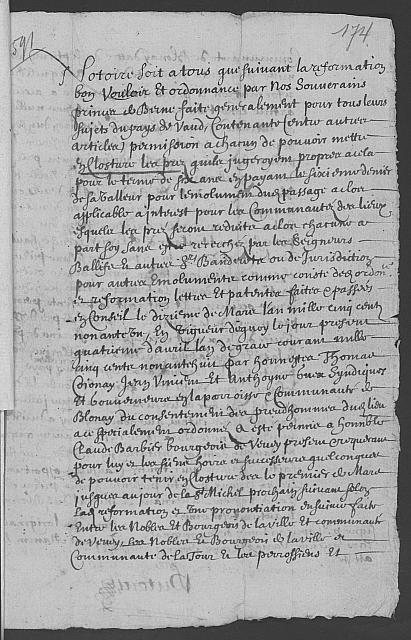 174
Notoire soit a tous que suivant la reformation
bon Vouloir et ordonnance par Nos Souverains
prince de Berne faite generalement pour tous leurs
sujets du pays de Vaud, Contenante (entre autres
articles) permission a chacun de pouvoir mettre
en Closture les prez quils jugeroyent propres a cela
pour le terme de six ans en payant le sixieme denier
de sa Valleur pour lemolument du passage a clos
applicable a interest pour les Communautez des lieux
esquels les prez seront reduits a clos chacun a
part soy sans estre recerchez par les Seigneurs
Ballifs et autres Banderets ou de Jurisdiction
pour autres Emoluments comme conste desd ordon
et reformation lettres et patentes faites & passées
en Conseil le dixieme de Mars lan mille cinq cents
nonante en Vigueur dequoy le jour present
quatrieme d'avril lan de grace courant mille
cinq cents nonante huit par honnestes Thomas
Jean Vincent et Anthoyne Syndiques
et Gouverneurs en la parroisse & Communauté de
Blonay du consentement des preudhommes dud lieu
a ce specialement ordonné a esté permis a honnble
Claude Barbier bourgeois de Vevey present & requerant
pour luy et les siens hoirs et successeurs quelconques
de pouvoir tenir en Closture des le premier de Mars
jusques au jour de la St Michel prochain suivant selon
lad reformation et une prononciation ensuivie faite
Entre les Nobles et Bourgeois de la ville et communauté
de Vevey, les Nobles & Bourgeois de la ville et
Communauté de la Tour & les perrossiens et